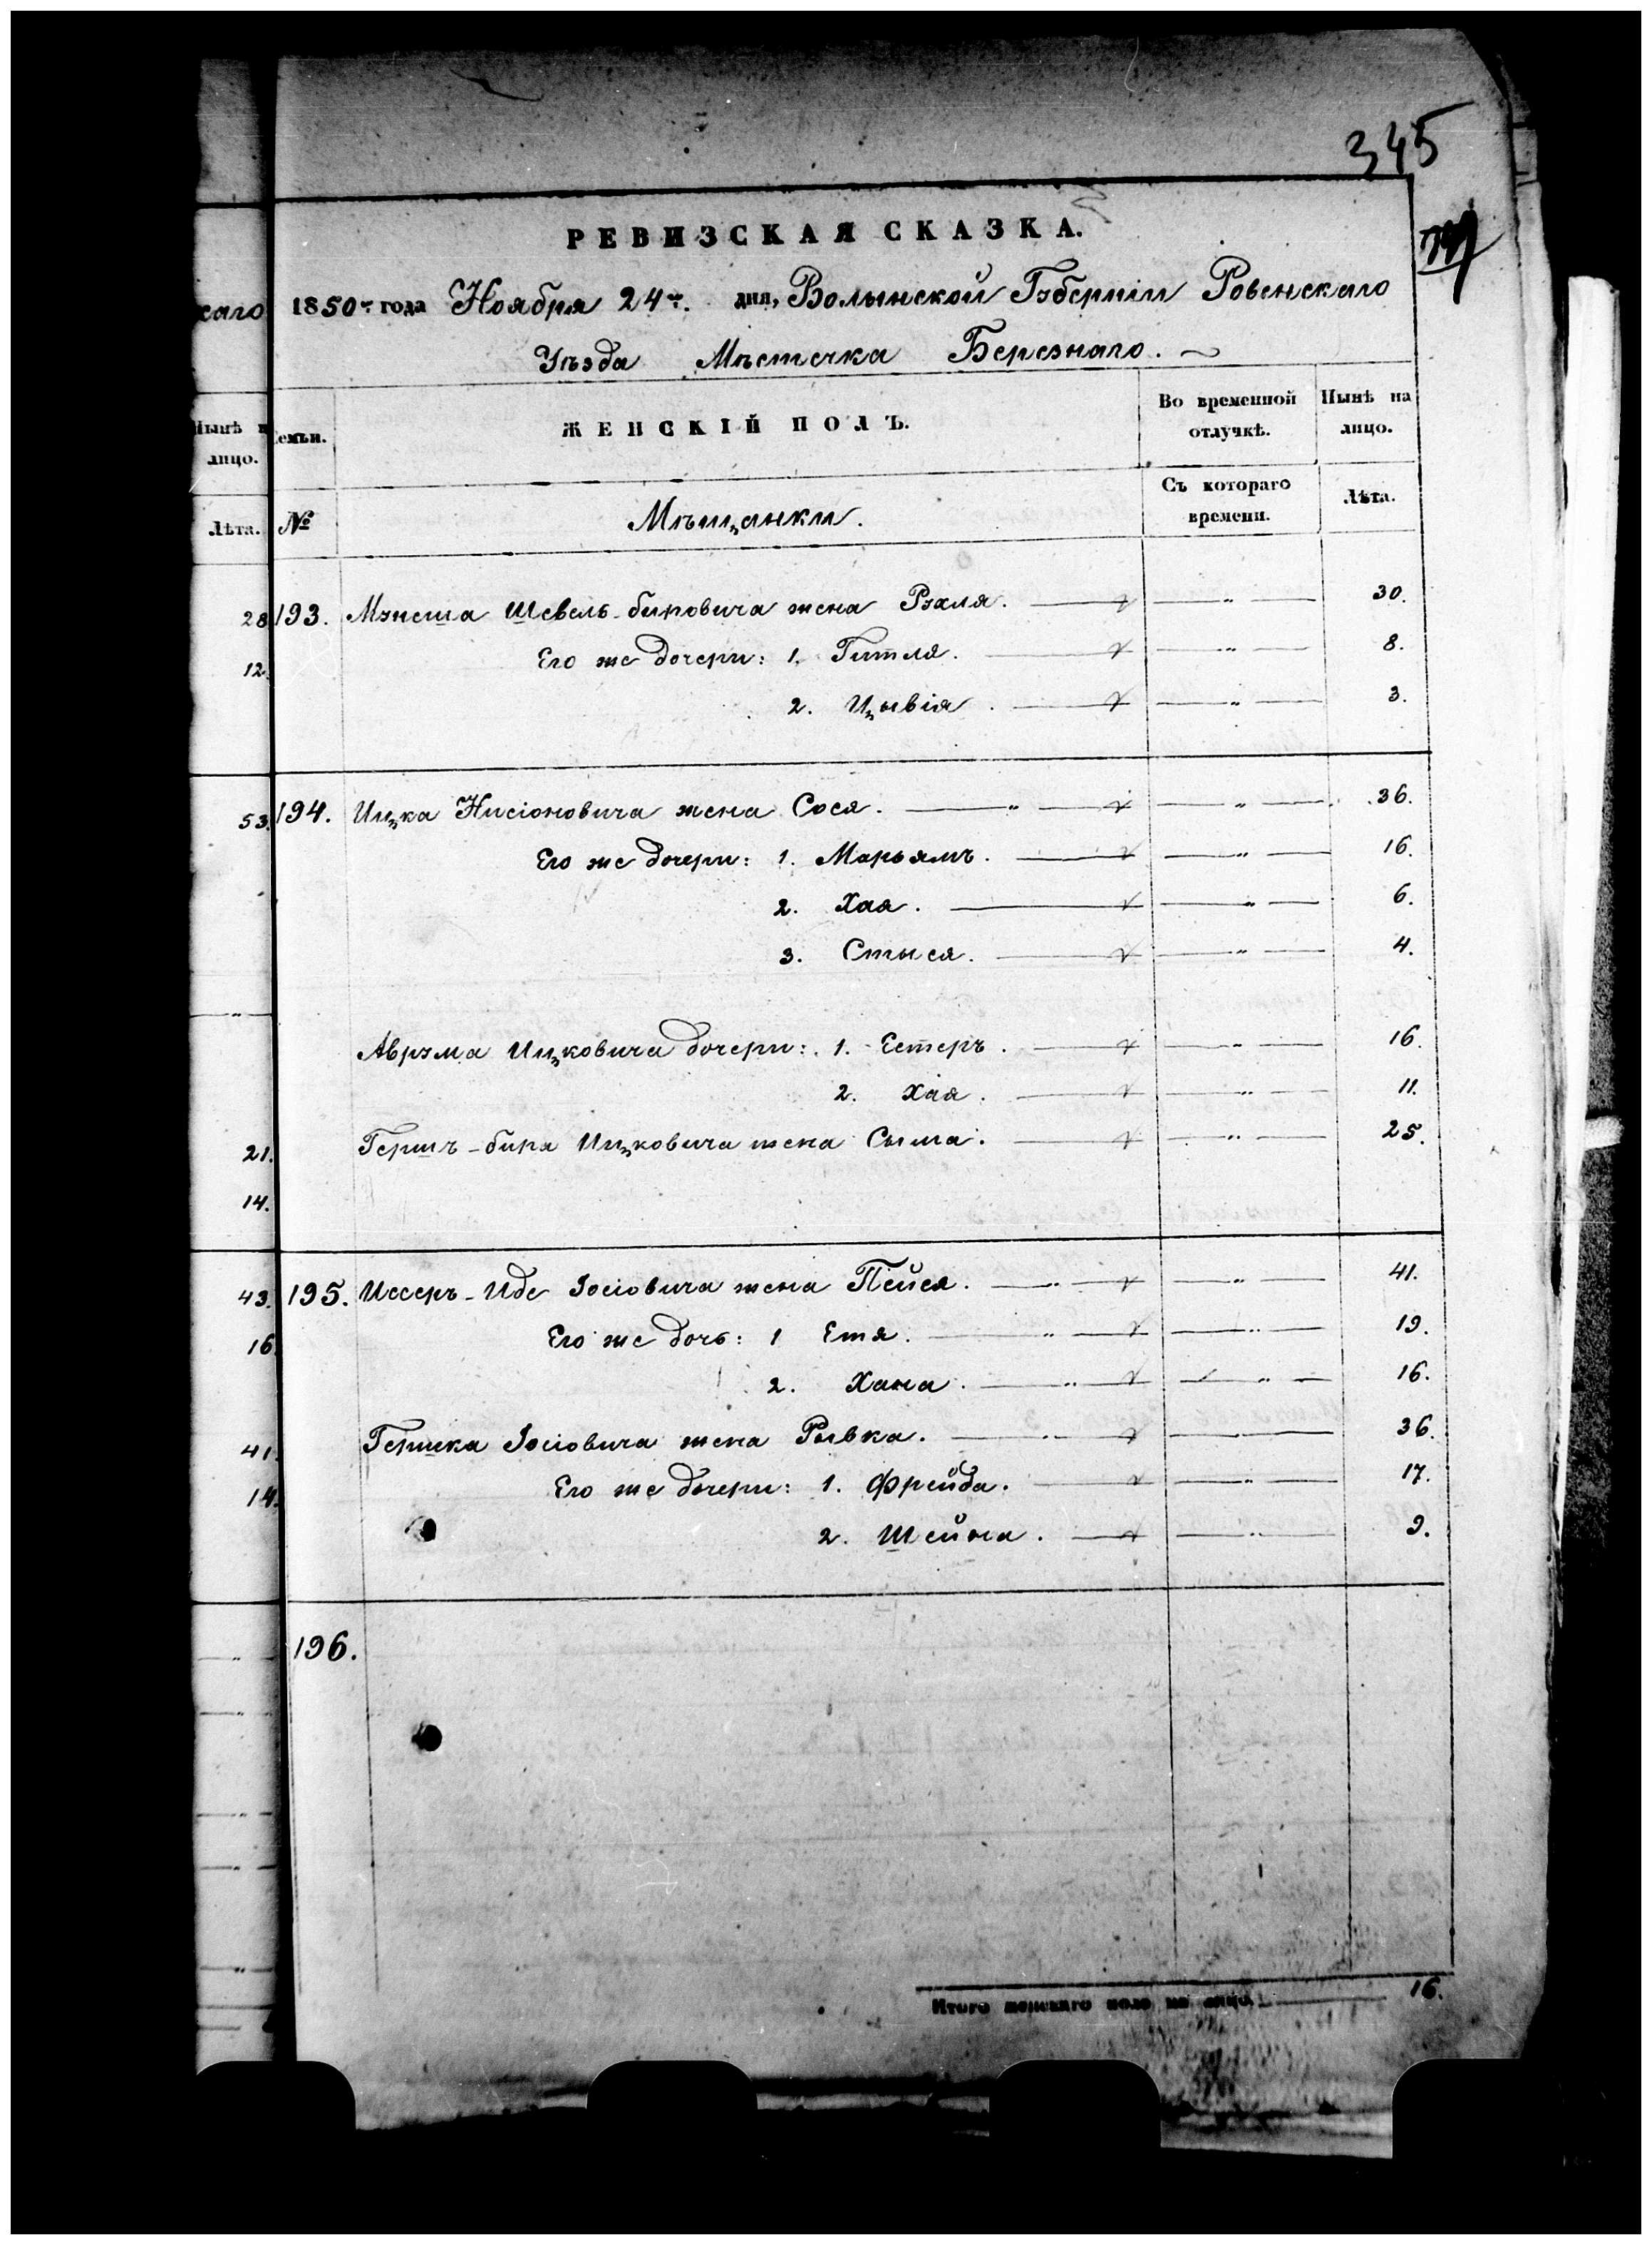 345
РЕВИЗСКАЯ СКАЗКА.
1850го года Ноября 24го дня, Волынской Губерніи Ровенскаго
Уѣзда Мѣстечка Березнаго.
каго
Семьи.
ЖЕНСКІЙ ПОЛЪ.
Во временной отлучкѣ.
Нынѣ на лицо.
Нынѣ
лицо.
№
Мѣщанки.
Съ котораго времени.
Лѣта.
Лѣта.
28 193. Мэнеша Шевель-бировича жена Рухля. — „ — 30.
12. Его же дочери: 1. Гитля. — „ — 8.
2. Цывія. — „ — 3.
53. 194. Ицка Нисіоновича жена Сося. — „ — „ — 36.
Его же дочери: 1. Марьямъ. — „ — 16.
2. Хая. — „ — 6.
3. Стыся. — „ — 4.
Аврума Ицковича дочери: 1. Естеръ. — „ — 16.
2. Хая. — „ — 11.
21. Гершъ-бира Ицковича жена Сыма. — „ — 25.
14.
43. 195. Иссеръ-Иде Іосіовича жена Пейся. — „ — „ — 41.
16 Его же дочь: 1 Етя. — „ — „ — 19.
2. Хана. — „ — „ — 16.
41. Гершка Іосіовича жена Рывка. — „ — „ — 36.
14. Его же дочери: 1. Фрейда. — „ — 17.
2. Шейна. — „ — 9.
196.
Итого женскаго пола на лицо. 16.